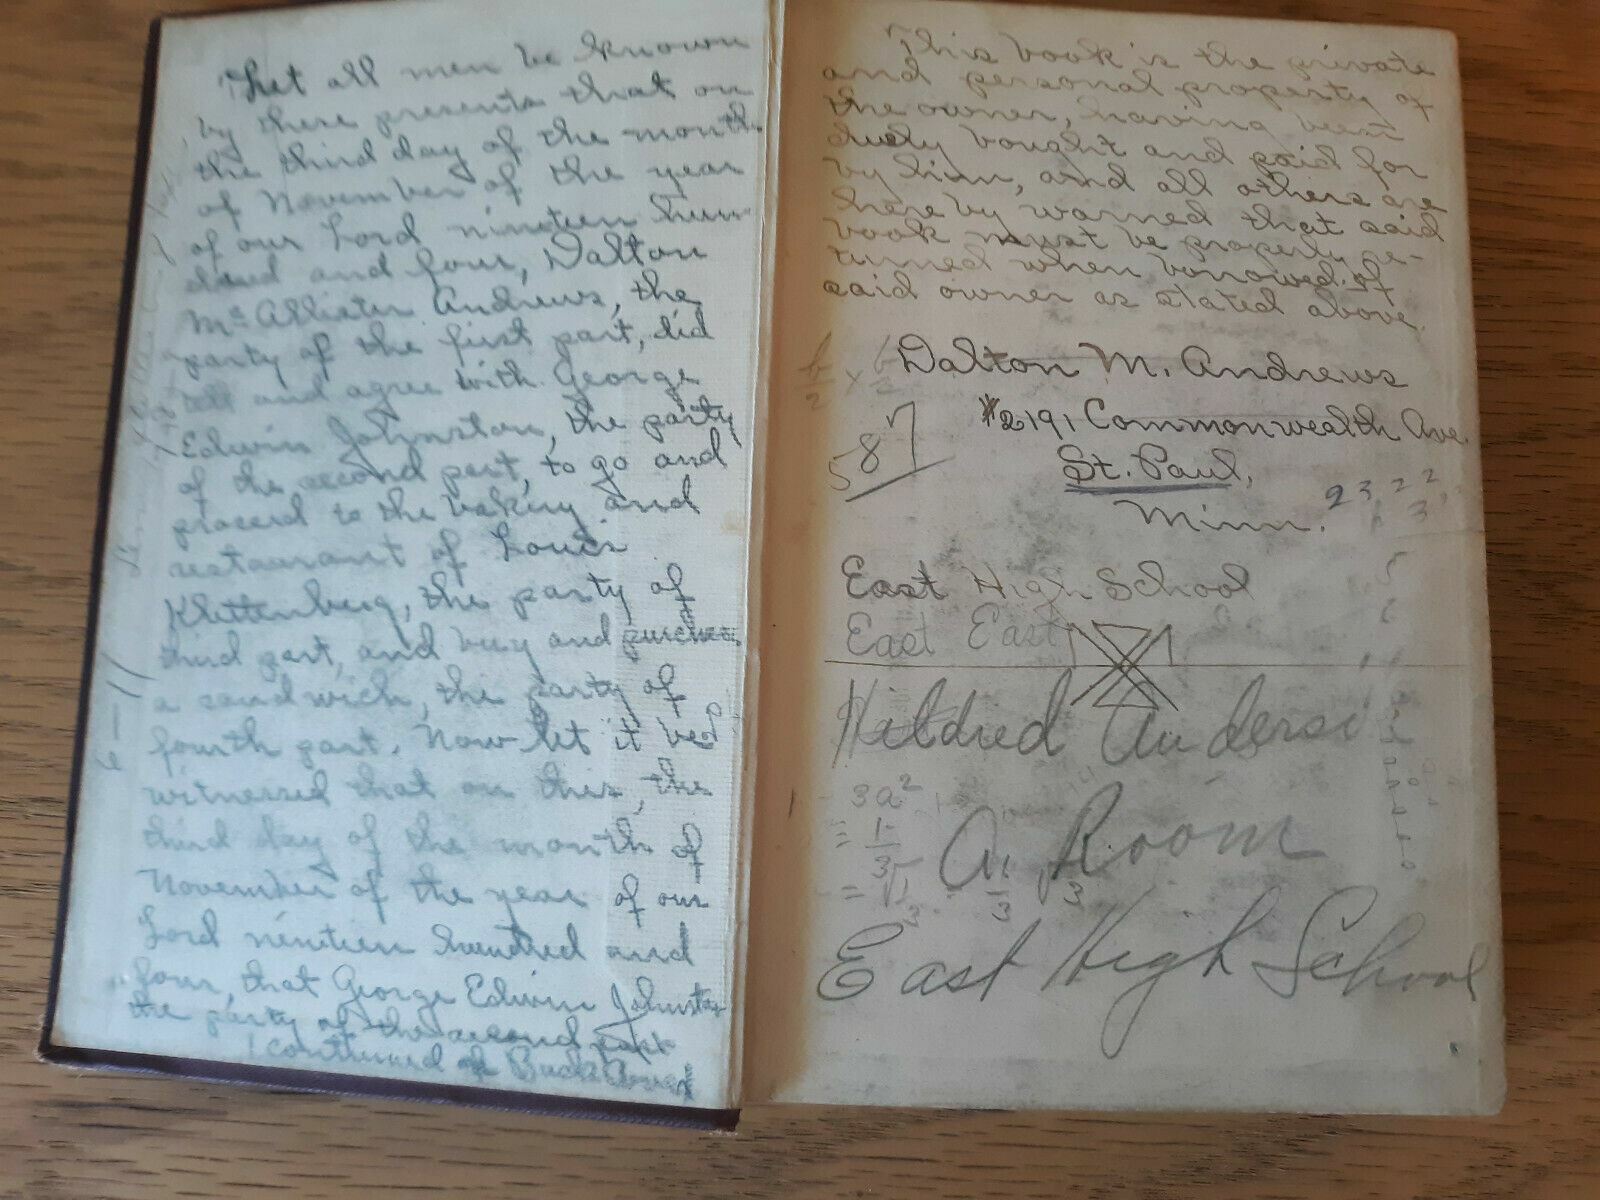 That all men be known
by these presents that on
the third day of the month
of November of the year
of our Lord nineteen hun-
dred and four, Dalton
McAllister Andrews, the
party of the first part, did
and agree with George
Edwin Johnston, the party
of the second part, to go and
proceed to the bakery and
restaurant of Louis
Klettenberg, the party of
third part, and buy and
a sandwich, the party of
fourth part. Now let it be
witnessed that on this, the
third day of the month of
November of the year of our
Lord nineteen hundred and
four, that George Edwin Johnston
the party of the second part
(continued at Back Cover)
6-11
This book is the private
and personal property of
the owner, having been
duly bought and paid for
by him, and all others are
here by warned that said
book must be properly re-
turned when borrowed of
said owner as stated above.
Dalton M. Andrews
#2191 Commonwealth Ave.
St. Paul,
Minn.
587
East High School
East East
Hildred Anders
A. Room
East High School
3a²
= 1/3